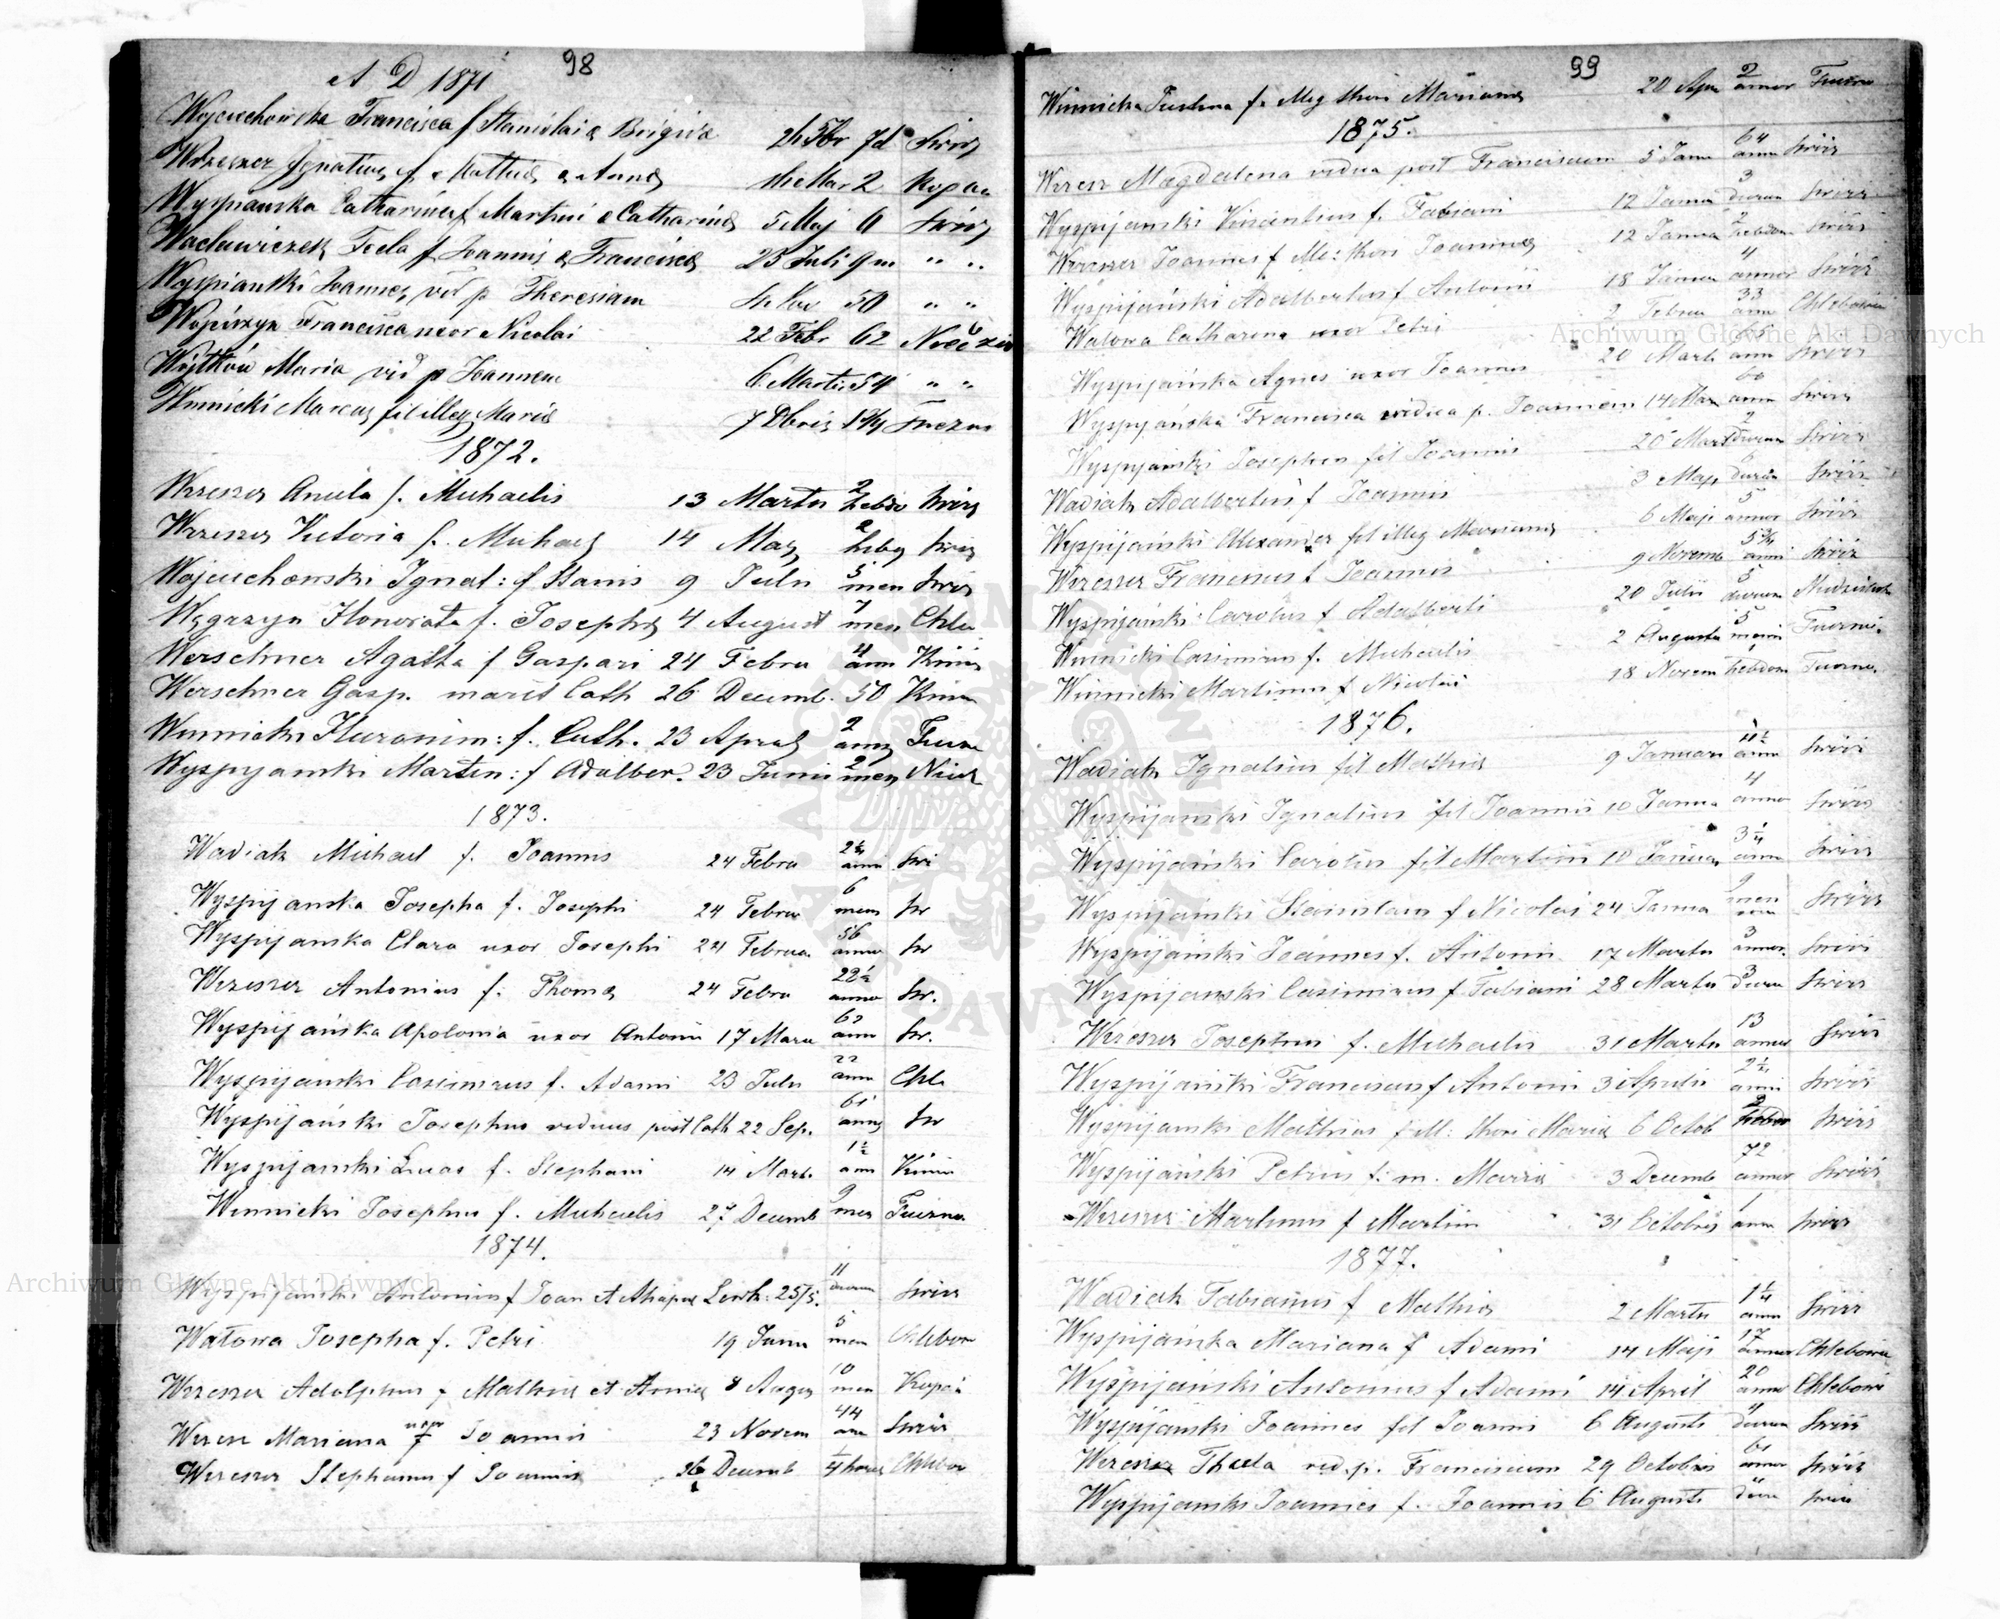 98
A D 1871
Wojciechowska Francisca f Stanislai & Brigidæ 7d Swirz
Wreszer Ignatius f & Annæ 2 Kopan
Wyspianska Catharina f Martini & Catharinæ 5 Maj 6 Swirz
Waclawiczek Tecla f Joannis & Franciscæ 23 Juli 9 m " "
Wyspianski Joannes vid p Theresiam 50 " "
Francisca uxor Nicolai 22 Febr 62
Wójtków Maria vid p Joannem 6 Martii 54 " "
Winnicki Marcus fil illeg Mariæ 7 Dbris
1872.
Wreszer Aniela f. Michaelis 13 Martii 2 hebdo Swirz
Wreszer Victoria f. Michael 14 Maj 2 Swirz
Wojciechowski Ignat: f Stanis 9 Julii 5 men Swirz
Węgrzyn Honorata f. Josephi 4 August 7 men Chle
Werschner Agatha f Gaspari 24 Febru 4 ann
Werschner Gasp. marit Cath 26 Decemb. 50
Winnicki Hieronim: f. Cath. 23 Aprel 2
Wyspyanski Martin: f Adalber. 23 Junii 2 men
1873.
Wadiak Michael f. Joannis 24 Febru 2½ anni Swi
Wyspijanska Josepha f. Josephi 24 Februa 6 mens Sw
Wyspijanska Clara uxor Josephi 24 Februa. 56 annor Sw
Wreszer Antonius f. Thomæ 24 Febru 22½ annor Sw.
Wyspijańska Apolonia uxor Antonii 17 Mara ann Sw.
Wyspijański Casimirus f. Adami 23 Julii 22 ann Chle
Wyspijański Josephus viduus post Cath 22 Sep. 61 Sw
Wyspijanski Lucas f. Stephani 14 Mart. 1½ ann
Winnicki Josephus f. Michaelis 27 Decemb 9 mes
1874.
Wyspijanski Antonius f Joan et 25/5. 11 dierum Swirz
Watowa Josepha f. Petri 19 Janu 5 men Chlebow
Wreszer Adolphus f Mathiæ et Annæ 8 Augus 10 men Kopan
Weresz Mariana uxor f Joannis 23 Novem 44 ann Swirz
Wereszer Stephanus f Joannis 26 Decemb ¼ horae Chlebow
99
Winnicka Justina f. illeg thori Marianæ 20 Apr 2 annor
1875.
Weresz Magdalena vidua post Franciscum 5 Janu 64 ann Swirz
Wyspijanski Vincentius f. Fabiani 12 Janua 3 dierum Swirz
Wreszer Joannes f Ille: thori Joannæ 12 Janua 2 hebdom Swirz
Wyspijański Adalbertus f Antonii 18 Janua 4 annor Swirz
Watowa Catharina uxor Petri 2 Februa 33 ann Chlebowi
Wyspijańska Agnes uxor Joannis 20 Marti ann Swirz
Wyspijańska Francisca vidua p. Joannem 14 Mar 60 ann Swirz
Wyspijański Josephus fil Joannis 20 Mart 2 dierum Swirz
Wadiak Adalbertus f Joannis 3 Maji dierum Swirz
Wyspijański Alexander fil illeg Marianæ 6 Maji 5 annor Swirz
Wereszer Franciscus f Joannis 9 Novemb 5¾ anni Swirz
Wyspijański Carolus f Adalberti 20 Julii 5 dierum
Winnicki Casimirus f. Michaelis 2 Augusta 5
Winnicki Martinus f Nicolai 18 Novem hebdom
1876.
Wadiak Ignatius fil Mathiæ 9 Januari 11½ anni Swirz
Wyspijanski Ignatius fil Joannis 10 Janua 4 annor Swirz
Wyspijański Carolus fil Martini 10 Janua 3¼ ann Swirz
Wyspijański Stanislaus f Nicolai 24 Janua 9 men Swirz
Wyspijański Joannes f. Antonii 17 Martii 3 annor. Swirz
Wyspijanski Casimirus f Fabiani 28 Martii 3 dieru Swirz
Wereszer Josephus f. Michaelis 31 Martii 13 annor Swirz
Wyspijański Franciscus f Antonii 3 Aprilis 2½ anni Swirz
Wyspijanski Mathias f Ill: thori Mariæ 6 Octob 2 hebdo Swirz
Wyspijański Petrus f: m. Mariæ 3 Decemb 72 annor Swirz
Wereszer Martinus f Martini 31 Octobris 1 ann Swirz
1877.
Wadiak Fabianus f Mathiæ 2 Martii 1¼ anni Swirz
Wyspijańska Mariana f Adami 14 Maji 17 annor Chlebowi
Wyspijański Antonius f Adami 14 April 20 annor Chlebowi
Wyspijański Joannes fil Joannis 6 Augusti 4 dierum Swirz
Wereszer Thecla vid. p. Franciscum 29 Octobris 61 annor Swirz
Wyspijanski Joannes f. Joannis 6 Augusti 4 dieru Swirz
ARCHIWUM GŁÓWNE AKT DAWNYCH
Archiwum Główne Akt Dawnych
Archiwum Główne Akt Dawnych